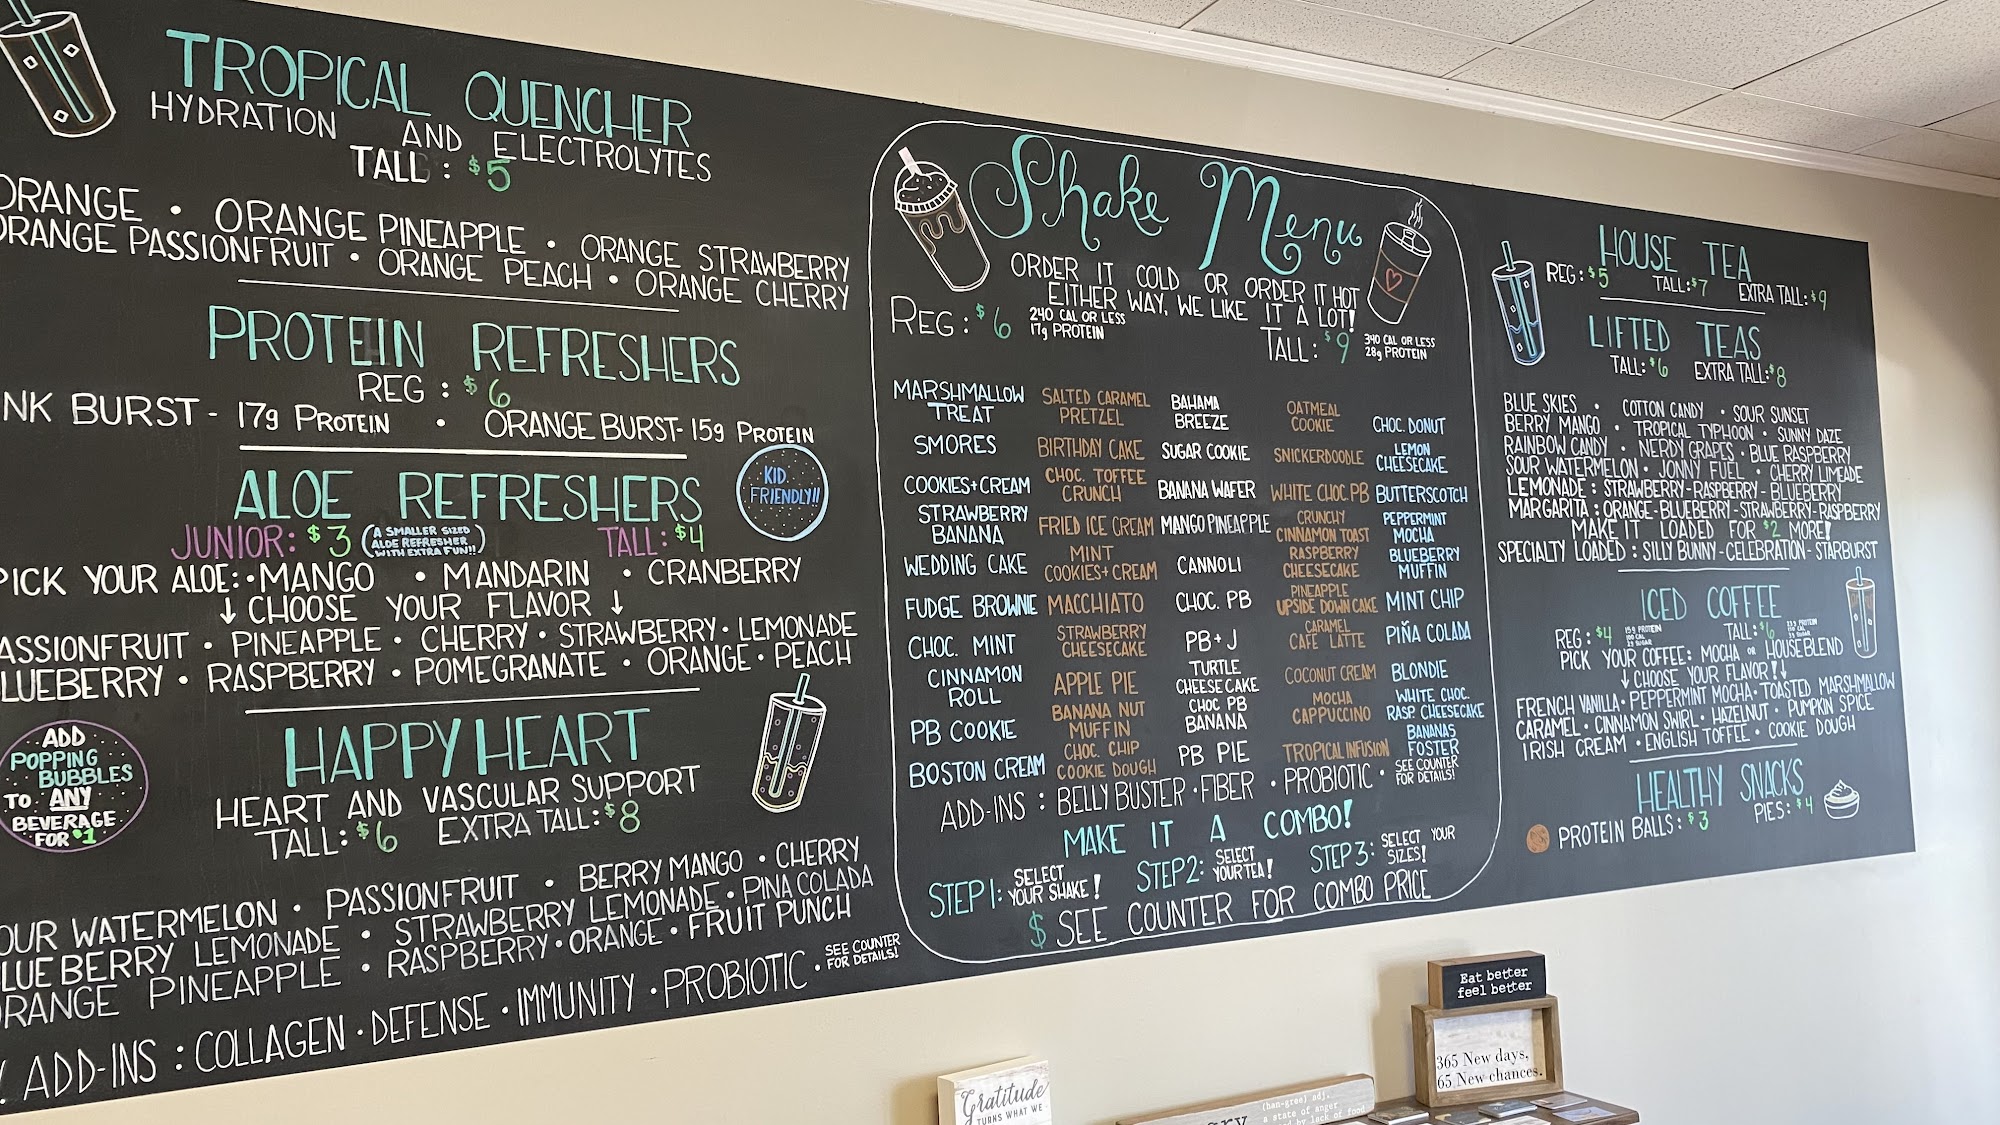 TROPICAL QUENCHER
HYDRATION AND ELECTROLYTES
TALL: $5
ORANGE • ORANGE PINEAPPLE • ORANGE STRAWBERRY
ORANGE PASSIONFRUIT • ORANGE PEACH • ORANGE CHERRY
PROTEIN REFRESHERS
REG: $6
NK BURST - 17g PROTEIN • ORANGE BURST - 15g PROTEIN
ALOE REFRESHERS
KID FRIENDLY!!
JUNIOR: $3 (A SMALLER SIZED
ALOE REFRESHER
WITH EXTRA FUN!!) TALL: $4
PICK YOUR ALOE: • MANGO • MANDARIN • CRANBERRY
↓ CHOOSE YOUR FLAVOR ↓
ASSIONFRUIT • PINEAPPLE • CHERRY • STRAWBERRY • LEMONADE
LUEBERRY • RASPBERRY • POMEGRANATE • ORANGE • PEACH
ADD
POPPING
BUBBLES
TO ANY
BEVERAGE
FOR $1
HAPPY HEART
HEART AND VASCULAR SUPPORT
TALL: $6 EXTRA TALL: $8
OUR WATERMELON • PASSIONFRUIT • BERRY MANGO • CHERRY
LUEBERRY LEMONADE • STRAWBERRY LEMONADE • PINA COLADA
ORANGE PINEAPPLE • RASPBERRY • ORANGE • FRUIT PUNCH
ADD-INS: COLLAGEN • DEFENSE • IMMUNITY • PROBIOTIC • SEE COUNTER
FOR DETAILS!
Shake Menu
ORDER IT COLD OR ORDER IT HOT
EITHER WAY, WE LIKE IT A LOT!
REG: $6 240 CAL OR LESS
17g PROTEIN
TALL: $9 340 CAL OR LESS
28g PROTEIN
MARSHMALLOW
TREAT
SMORES
COOKIES+CREAM
STRAWBERRY
BANANA
WEDDING CAKE
FUDGE BROWNIE
CHOC. MINT
CINNAMON
ROLL
PB COOKIE
BOSTON CREAM
SALTED CARAMEL
PRETZEL
BIRTHDAY CAKE
CHOC. TOFFEE
CRUNCH
FRIED ICE CREAM
MINT
COOKIES+CREAM
MACCHIATO
STRAWBERRY
CHEESECAKE
APPLE PIE
BANANA NUT
MUFFIN
CHOC. CHIP
COOKIE DOUGH
BAHAMA
BREEZE
SUGAR COOKIE
BANANA WAFER
MANGO PINEAPPLE
CANNOLI
CHOC. PB
PB+J
TURTLE
CHEESECAKE
CHOC PB
BANANA
PB PIE
OATMEAL
COOKIE
SNICKERDOODLE
WHITE CHOC. PB
CRUNCHY
CINNAMON TOAST
RASPBERRY
CHEESECAKE
PINEAPPLE
UPSIDE DOWN CAKE
CARAMEL
CAFE LATTE
COCONUT CREAM
MOCHA
CAPPUCCINO
TROPICAL INFUSION
CHOC. DONUT
LEMON
CHEESECAKE
BUTTERSCOTCH
PEPPERMINT
MOCHA
BLUEBERRY
MUFFIN
MINT CHIP
PIÑA COLADA
BLONDIE
WHITE CHOC.
RASP. CHEESECAKE
BANANAS
FOSTER
ADD-INS: BELLY BUSTER • FIBER • PROBIOTIC • SEE COUNTER
FOR DETAILS!
MAKE IT A COMBO!
STEP 1: SELECT
YOUR SHAKE!
STEP 2: SELECT
YOUR TEA!
STEP 3: SELECT YOUR
SIZES!
$ SEE COUNTER FOR COMBO PRICE
HOUSE TEA
REG: $5 TALL: $7 EXTRA TALL: $9
LIFTED TEAS
TALL: $6 EXTRA TALL: $8
BLUE SKIES • COTTON CANDY • SOUR SUNSET
BERRY MANGO • TROPICAL TYPHOON • SUNNY DAZE
RAINBOW CANDY • NERDY GRAPES • BLUE RASPBERRY
SOUR WATERMELON • JONNY FUEL • CHERRY LIMEADE
LEMONADE: STRAWBERRY - RASPBERRY - BLUEBERRY
MARGARITA: ORANGE - BLUEBERRY - STRAWBERRY - RASPBERRY
MAKE IT LOADED FOR $2 MORE!
SPECIALTY LOADED: SILLY BUNNY - CELEBRATION - STARBURST
ICED COFFEE
REG: $4 15g PROTEIN
100 CAL
TALL: $6
PICK YOUR COFFEE: MOCHA OR HOUSEBLEND
↓ CHOOSE YOUR FLAVOR! ↓
FRENCH VANILLA • PEPPERMINT MOCHA • TOASTED MARSHMALLOW
CARAMEL • CINNAMON SWIRL • HAZELNUT • PUMPKIN SPICE
IRISH CREAM • ENGLISH TOFFEE • COOKIE DOUGH
HEALTHY SNACKS
PROTEIN BALLS: $3 PIES: $4
Eat better
feel better
365 New days,
65 New chances.
Gratitude
TURNS WHAT WE
(han-gree) adj.
a state of anger
by lack of food